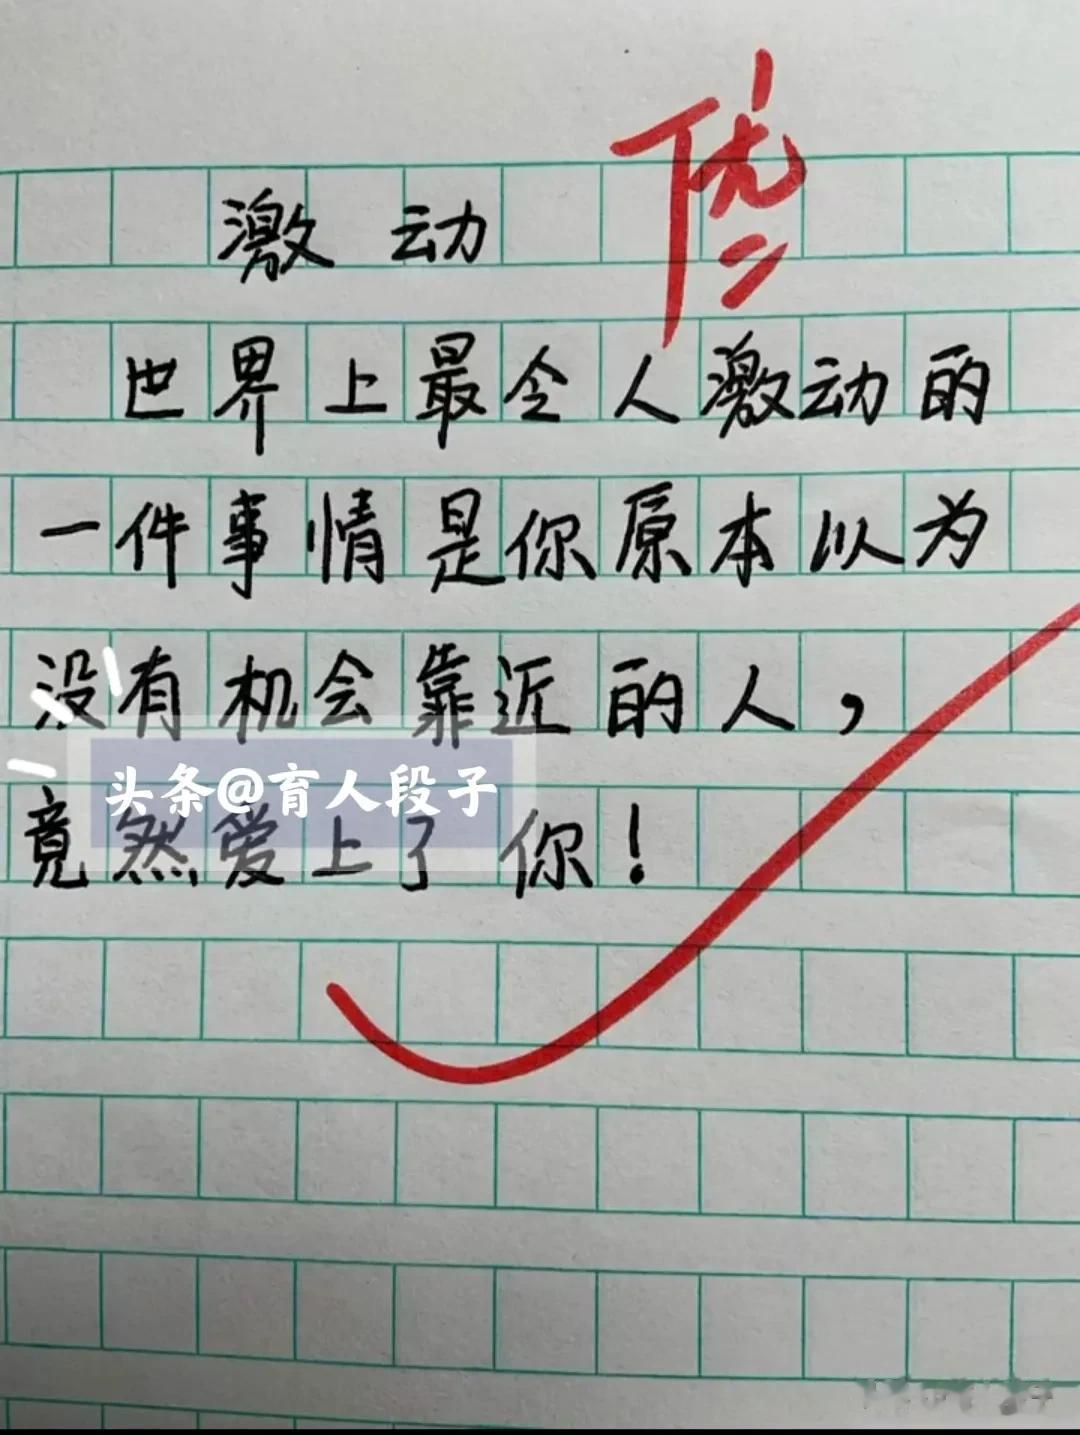 优
激动
世界上最令人激动的
一件事情是你原本以为
没有机会靠近的人，
头条@育人段子
竟然爱上了你！